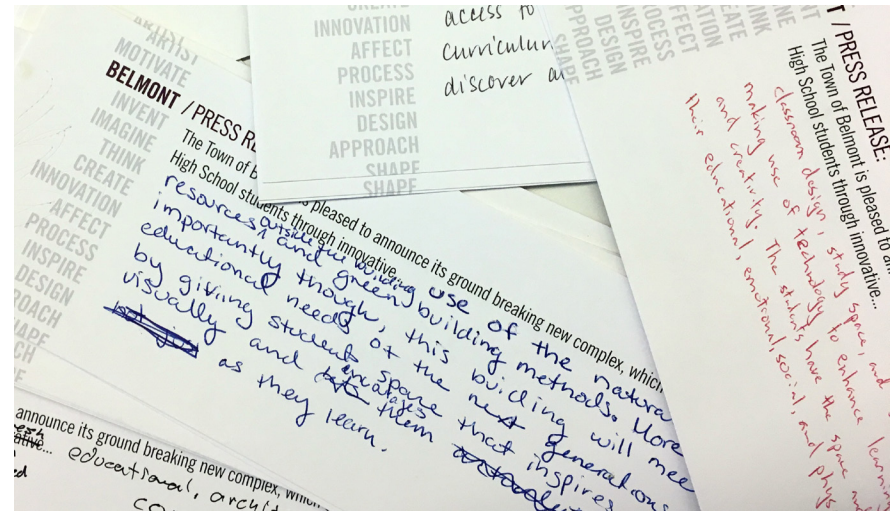 ARTIST
MOTIVATE
BELMONT / PRESS RE
INVENT
IMAGINE
THINK
CREATE
INNOVATION
AFFECT
PROCESS
INSPIRE
DESIGN
The Town of B is pleased to announce its ground breaking new complex, which
High School students through innovative...
resources outside the building use of the natura
importantly and green building methods. More
educational though, this building will mee
needs of the next generations
by giving student space that inspires
visually and encourages them
as they learn.
CREATE
INNOVATION
AFFECT
PROCESS
INSPIRE
DESIGN
APPROACH
SHAPE
SHAPE
access to
curriculum
discover
APPROACH
SHAPE
DESIGN
INSPIRE
PROCESS
AFFECT
CREATE
T / PRESS RELEASE:
The Town of Belmont is pleased to
High School students through innovative...
classroom design, study space, and learnin
making use of technology to enhance
and creativity. The students have the space and
their educational, emotional, social, and phys
announce its ground breaking new complex, which
educational, archit